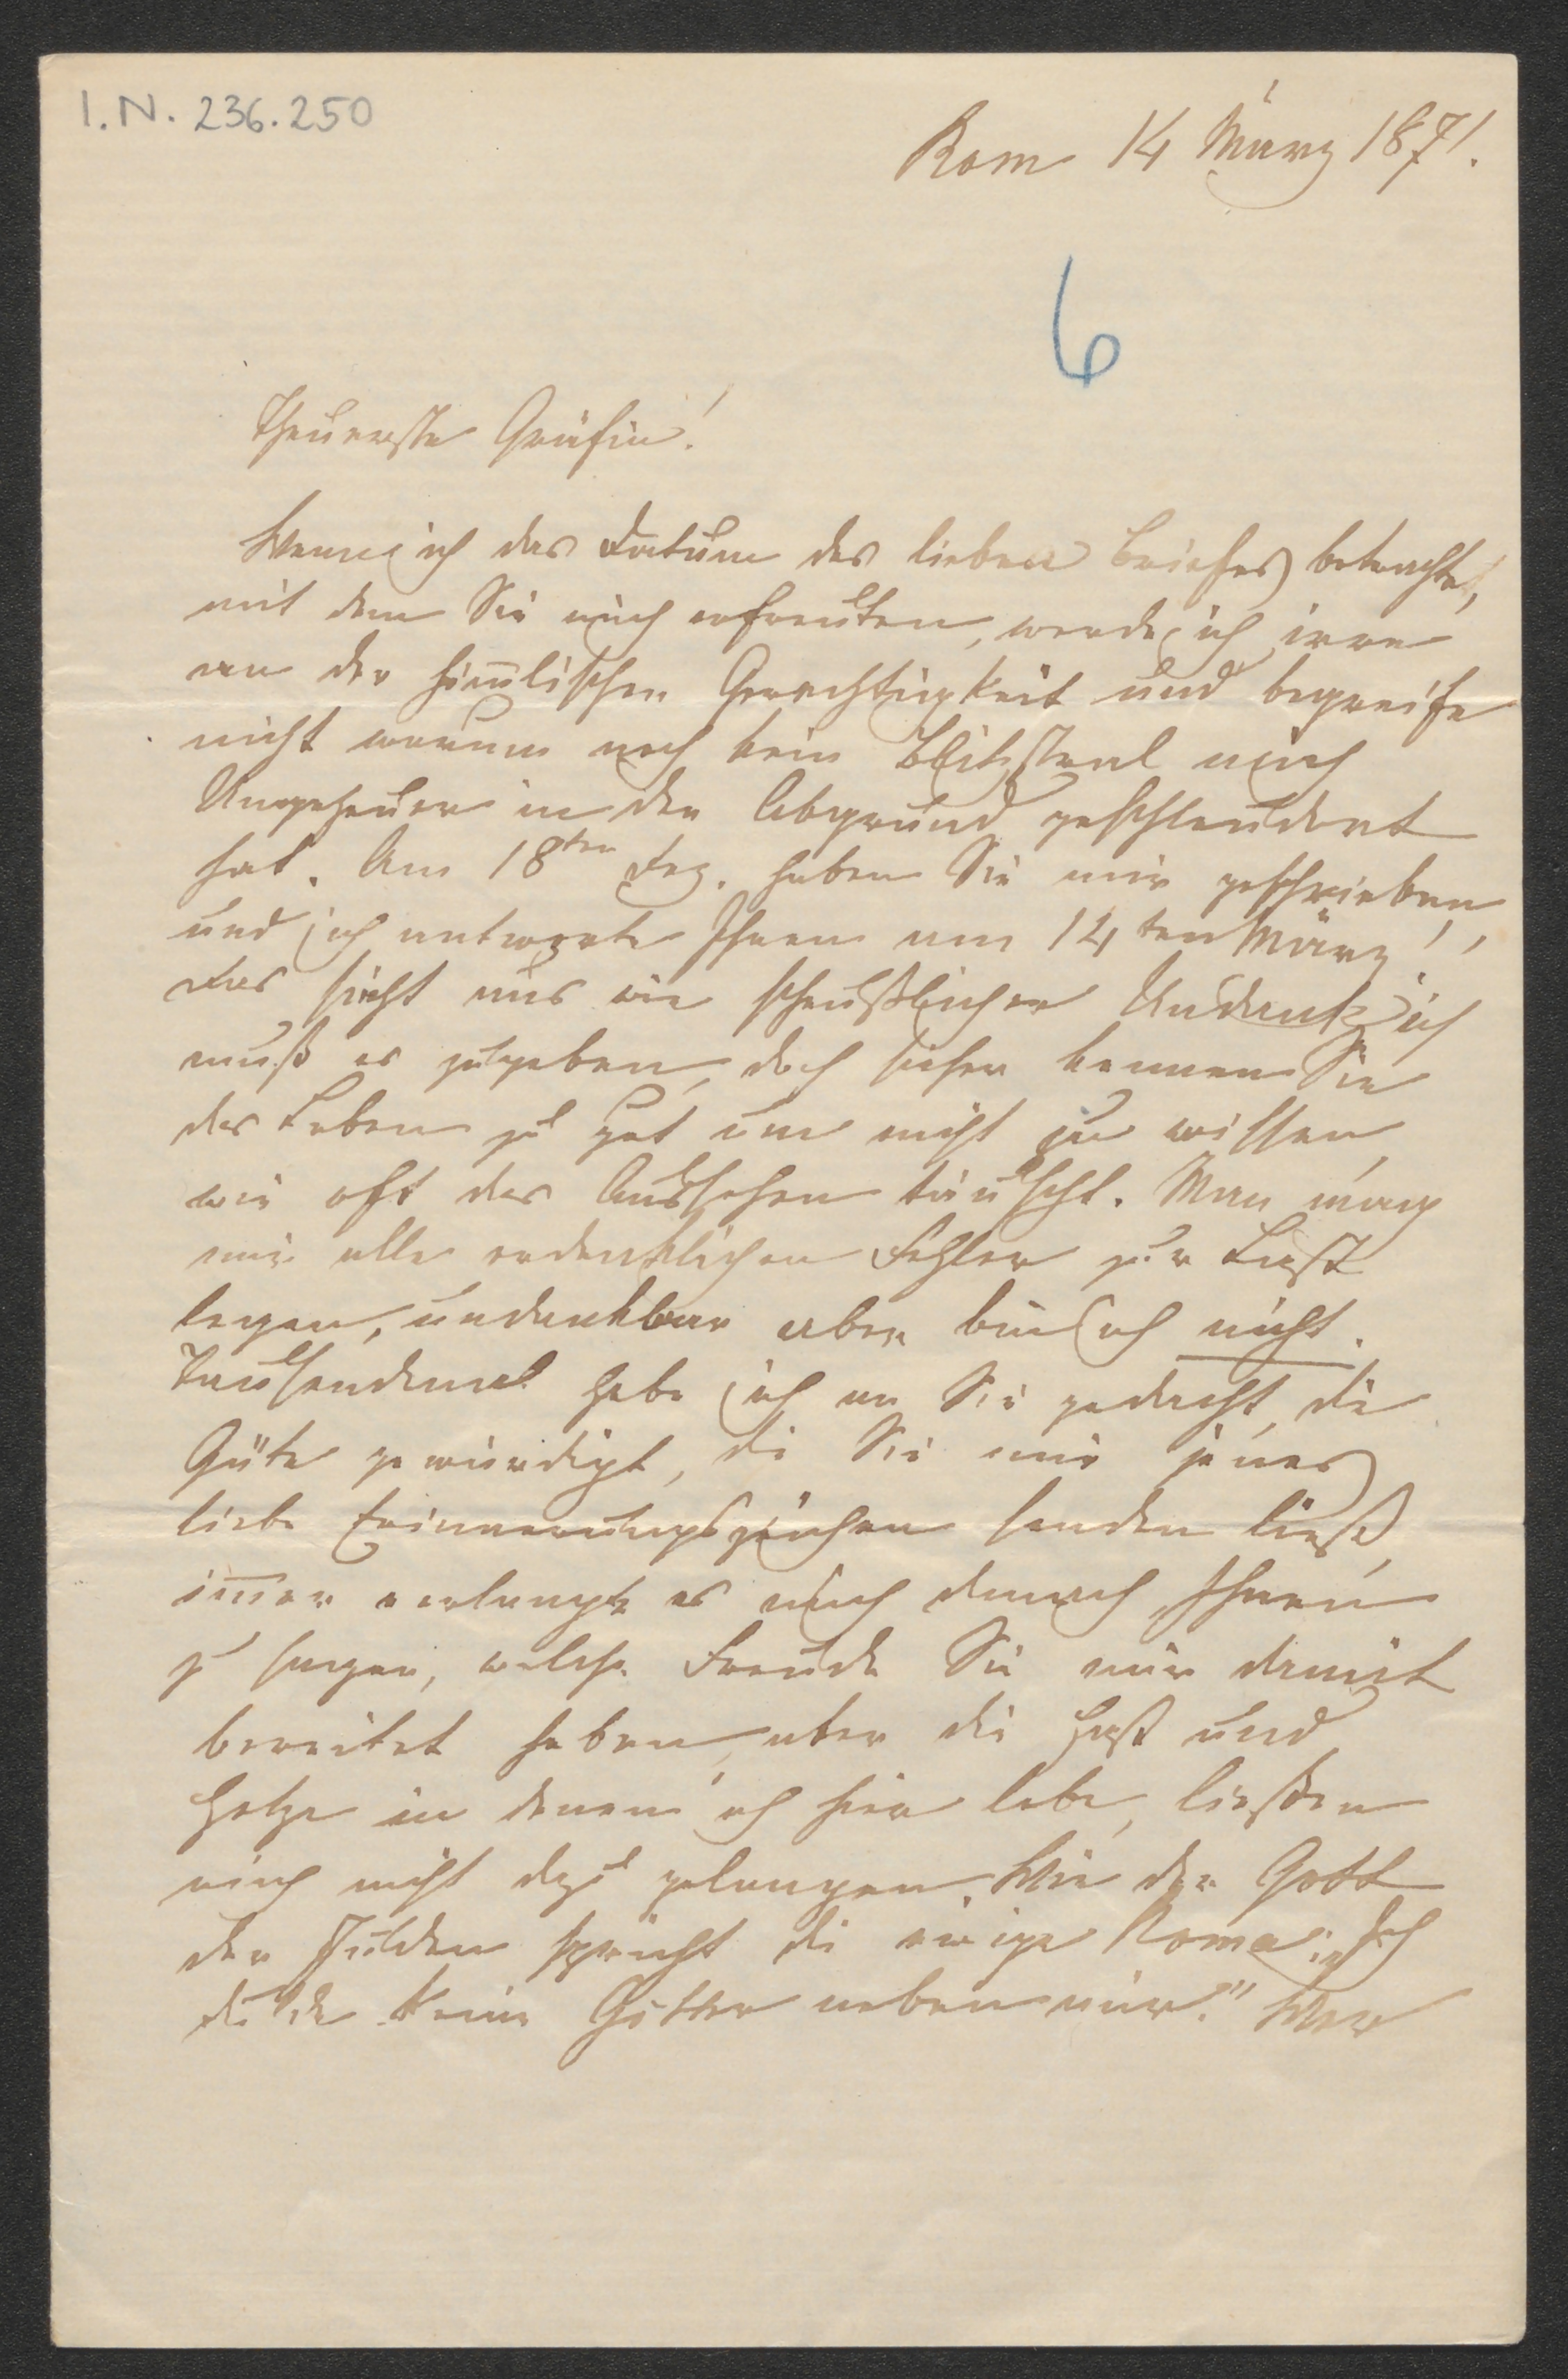 I.N. 236.250
Rom 14 März 1871.
6
Theuerste Gräfin!
Wenn ich das Datum des lieben Briefes betrachte,
mit dem Sie mich erfreuten, werde ich irre
an der him̄lischen Gerechtigkeit und begreife
nicht warum noch kein Blitzstral mich
Ungeheuer in den Abgrund geschleudert
hat. Am 18ten Dez. haben Sie mir geschrieben,
und ich antworte Ihnen am 14ten März!,
das sieht aus wie scheußlicher Undank ich
muß es zugeben, doch sicher kennen Sie
das Leben zu gut um nicht zu wissen,
wie oft das Aussehen täuscht. Man mag
mir alle erdenklichen Fehler zur Last
legen, undankbar aber bin ich nicht.
Tausendemal habe ich an Sie gedacht, die
Güte gewürdigt, die Sie mir jenes
liebe Erinnerungszeichen senden ließ,
im̄er verlangte es mich danach Ihnen
zu sagen, welche Freude Sie mir damit
bereitet haben, aber die Hast und
Hetze in denen ich hier lebe, ließen
mich nicht dazu gelangen. Wie der Gott
der Juden spricht die ewige Roma: „Ich
dulde keine Götter neben mir." Wer